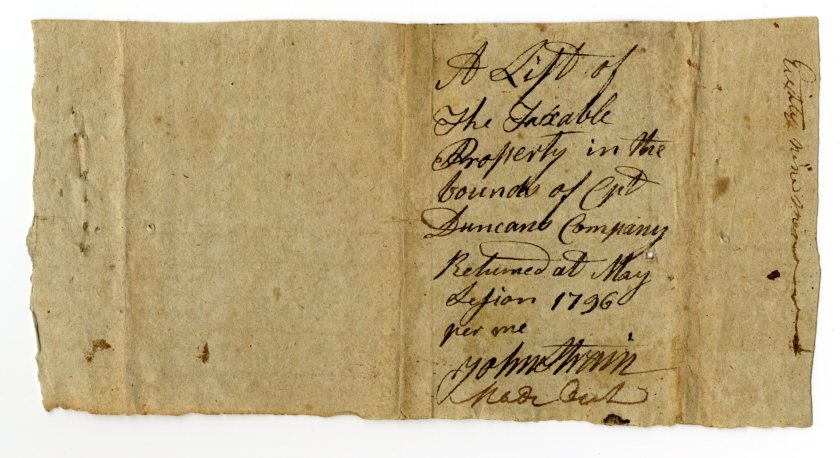 A List of
The Taxable
Property in the
bounds of Cpt
Duncans Company
Returned at May
Session 1796
per me
John Strain
Made Out
Eighty nine